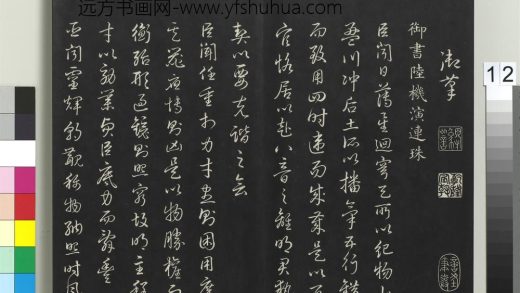 远方书画网-www.yfshuhua.com
御筆
御書陸機演連珠
臣聞日薄星迴穹天所以紀物山
盈川沖后土所以播氣五行錯
而致用四時違而成歲是以百
官恪居以赴八音之離明君執
契以要克諧之會
臣聞任重於力才盡則困用廣
其器應博則凶是以物勝權而
衡殆形過鏡則照窮故明主程
才以效業貞臣底力而辭豐
臣聞靈輝朝覯稱物納照時風
1 2